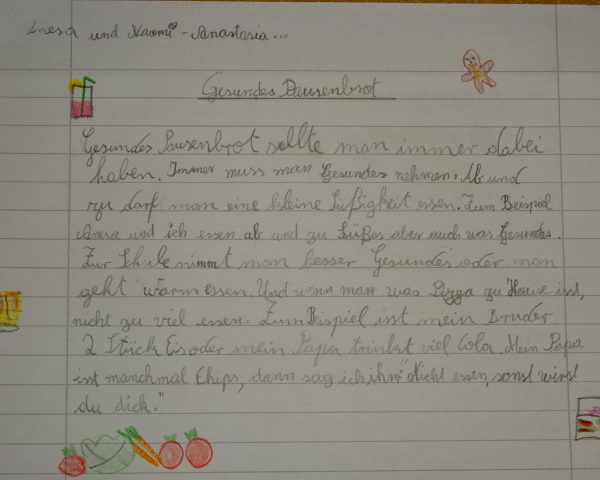 Anesa und Naomi - Anastasia...
Gesundes Pausenbrot
Gesundes Pausenbrot sollte man immer dabei
haben. Immer muss man Gesundes nehmen. Ab und
zu darf man eine kleine Süßigkeit essen. Zum Beispiel
Anesa und ich essen ab und zu Süßes aber auch was Gesundes.
Zur Schule nimmt man besser Gesundes oder man
geht warm essen. Und wenn man was Pizza zu Hause isst,
nicht zu viel essen. Zum Beispiel isst mein Bruder
2 Stück Eis oder mein Papa trinkt viel Cola. Mein Papa
isst manchmal Chips, dann sag ich ihm "Nicht essen, sonst wirst
du dick."